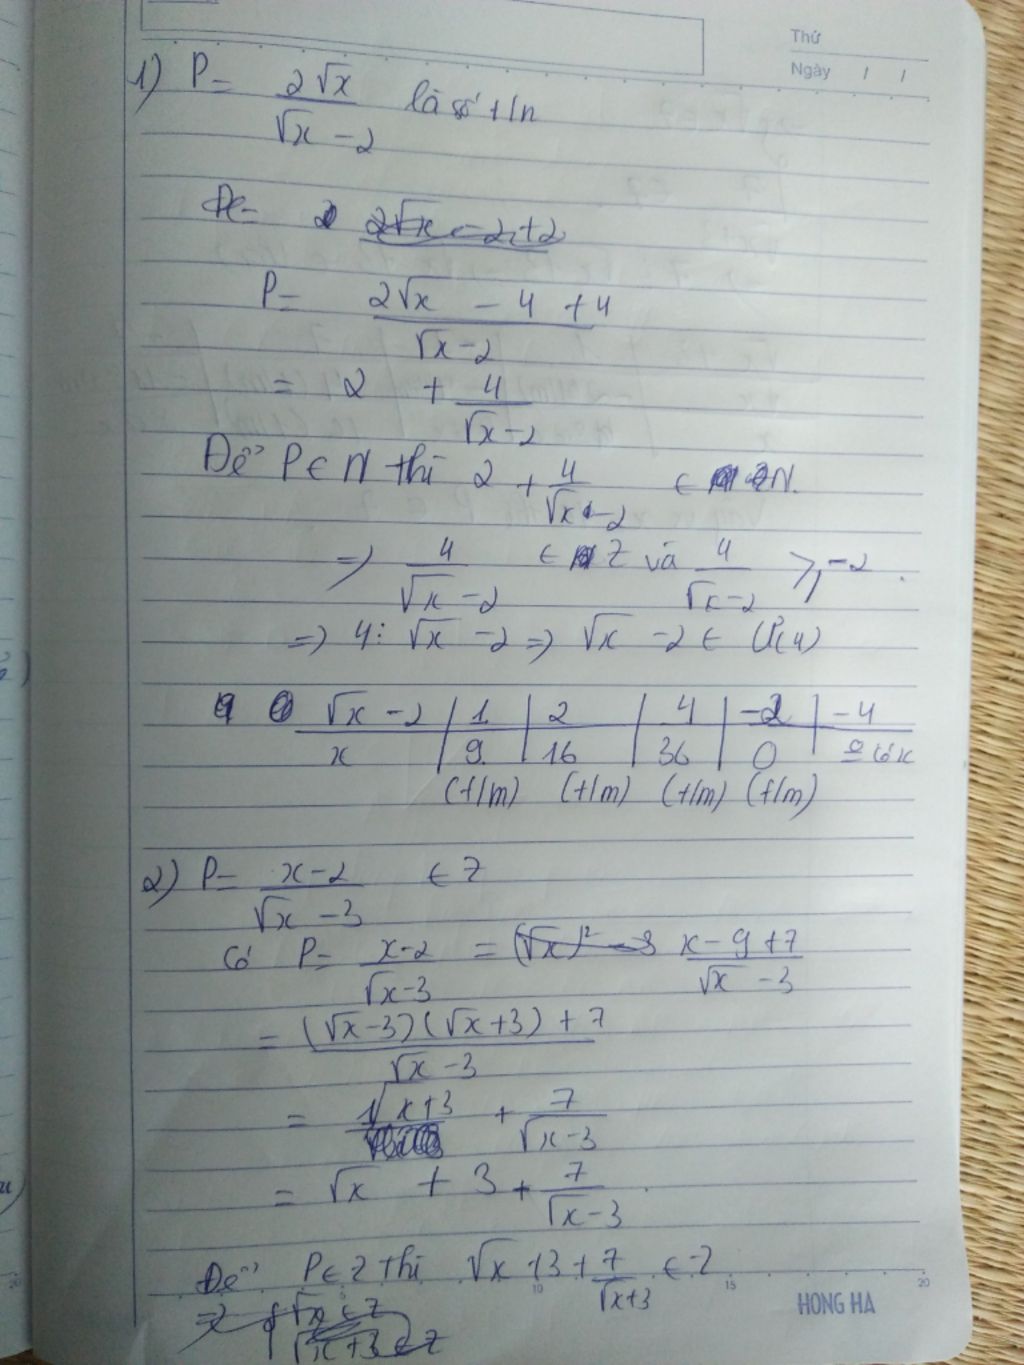 Thứ
Ngày / /
1) P = 2√x / (√x - 2) là số t/n
P = (2√x - 4 + 4) / (√x - 2)
= 2 + 4 / (√x - 2)
Để P ∈ N thì 2 + 4 / (√x - 2) ∈ N.
=> 4 / (√x - 2) ∈ Z và 4 / (√x - 2) ≥ -2.
=> 4 ⋮ √x - 2 => √x - 2 ∈ Ư(4)
√x - 2 | 1 | 2 | 4 | -2 | -4
x | 9 | 16 | 36 | 0 | có x
(t/m) (t/m) (t/m) (t/m)
2) P = (x - 2) / (√x - 3) ∈ Z
Có P = (x - 2) / (√x - 3) = (x - 9 + 7) / (√x - 3)
= ((√x - 3)(√x + 3) + 7) / (√x - 3)
= √x + 3 + 7 / (√x - 3)
= √x + 3 + 7 / (√x - 3).
Để P ∈ Z thì √x + 3 + 7 / (√x + 3) ∈ Z
10 15 20
HONG HA